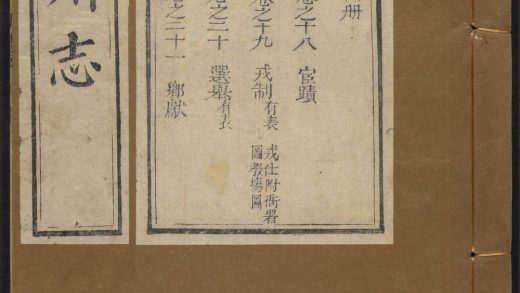 册
卷之十八 宦蹟
卷之十九 戎制有表 戎仕附衙署圖教塲圖
卷之二十 選舉有表
之二十一 鄉獻
志